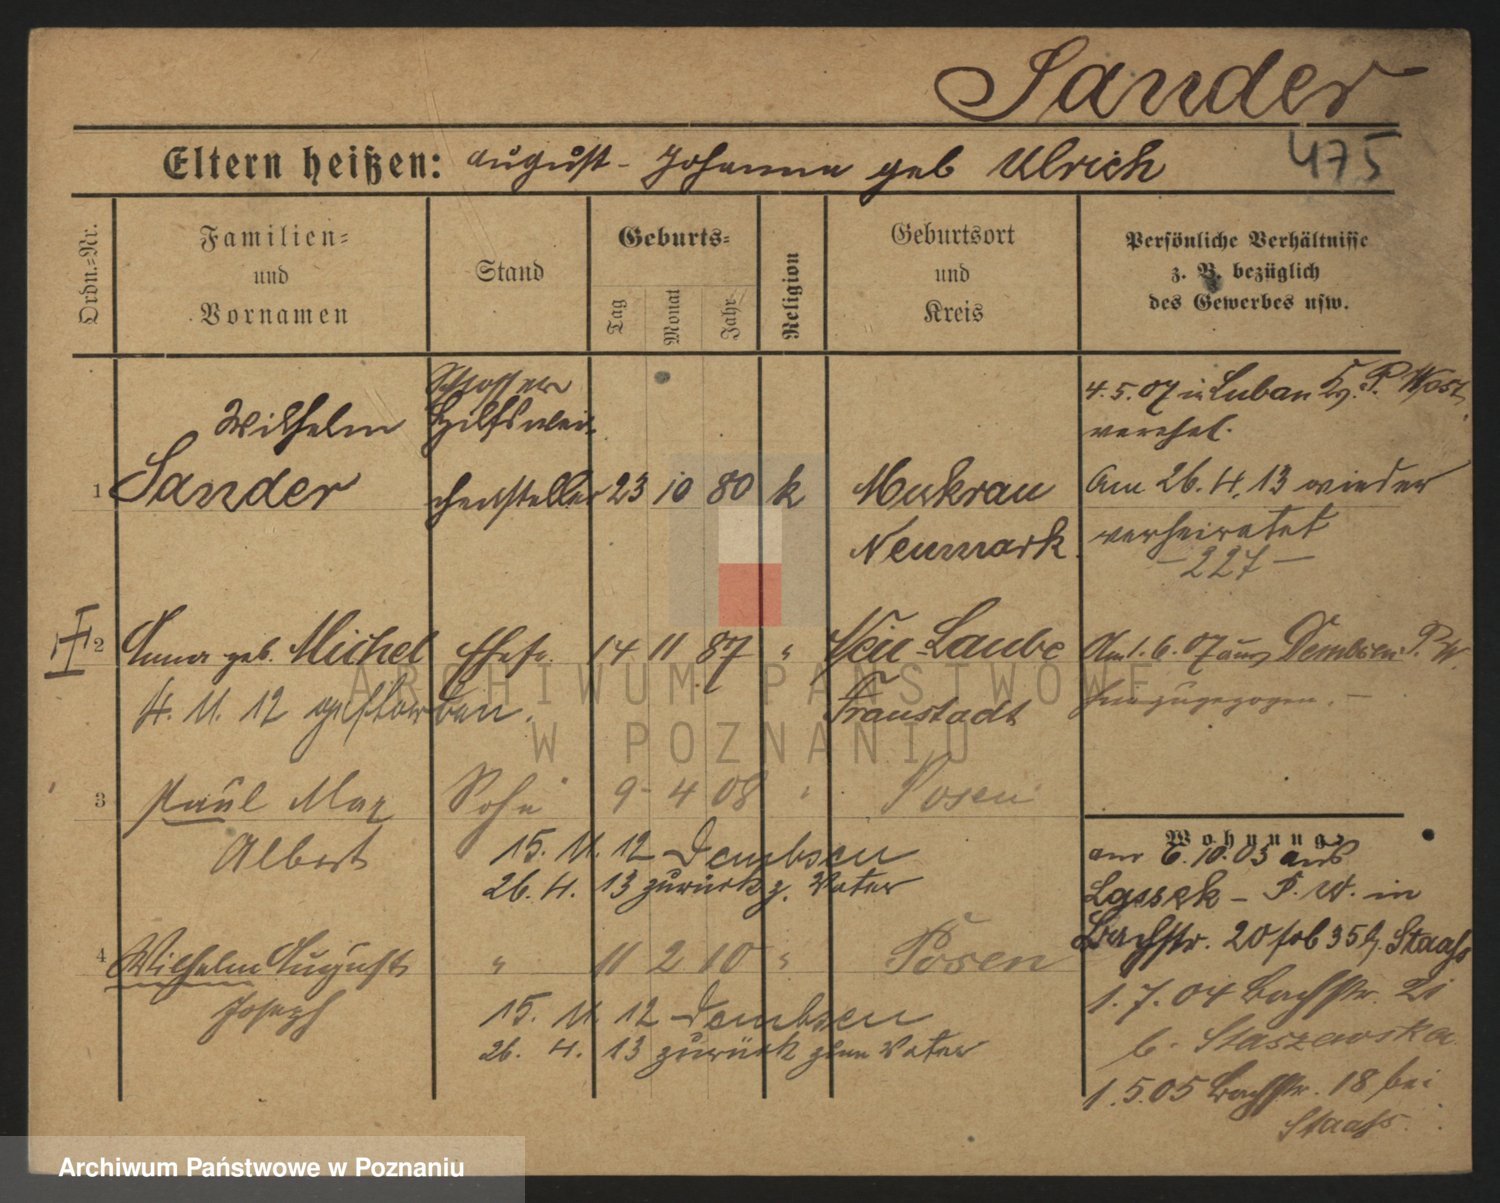 Sander
475
Eltern heißen: August - Johanna geb Ulrich
Ordn.=Nr.
Familien=
und
Vornamen
Stand
Geburts=
Tag
Monat
Jahr
Religion
Geburtsort
und
Kreis
Persönliche Verhältnisse
z. B. bezüglich
des Gewerbes usw.
Schlosser
Wilhelm
1 Sander
23 10 80 k
Neumark
4.5.07 in Luban Kr. P. West
verehel.
Am 26.4.13 wieder
verheiratet
- 227 -
2 Anna geb. Michel Ehefr. 14 11 87 " Neu-Laube
4. 11. 12 gestorben.
Fraustadt
Am 1.6.07 aus Dembsen P. W.
hinzugezogen. -
3 Paul Max Sohn 9 - 4 08 " Posen
Albert
15. 11. 12 Dembsen
26. 4. 13 zurück z. Vater
4 Wilhelm August " 11 2 10 " Posen
Joseph
15. 11. 12 Dembsen
26. 4. 13 zurück zum Vater
Wohnung
am 6.10.03 aus
Lassek - P. W. in
Bachstr. 20 b. Staafs
1.7.04 Bachstr. 21
b. Staszewska
1.5.05 Bachstr. 18 bei
Staafs.
ARCHIWUM PAŃSTWOWE
W POZNANIU
Archiwum Państwowe w Poznaniu